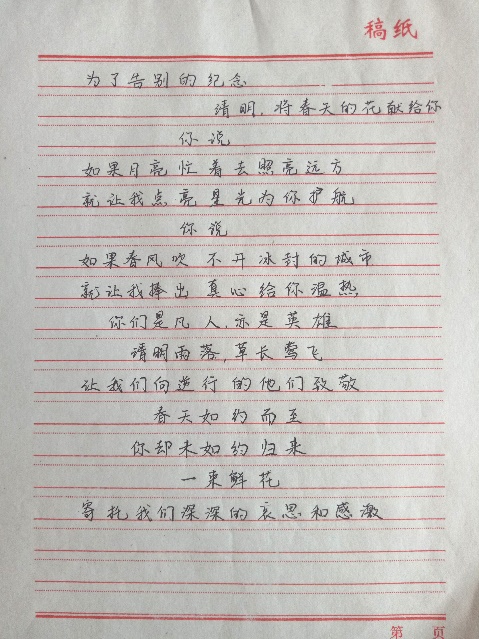 稿纸
为了告别的纪念
清明,将春天的花献给你
你说
如果月亮忙着去照亮远方
就让我点亮星光为你护航
你说
如果春风吹不开冰封的城市
就让我捧出真心给你温热,
你们是凡人,亦是英雄
清明雨落,草长莺飞
让我们向逆行的他们致敬
春天如约而至
你却未如约归来
一束鲜花
寄托我们深深的哀思和感激
第 页